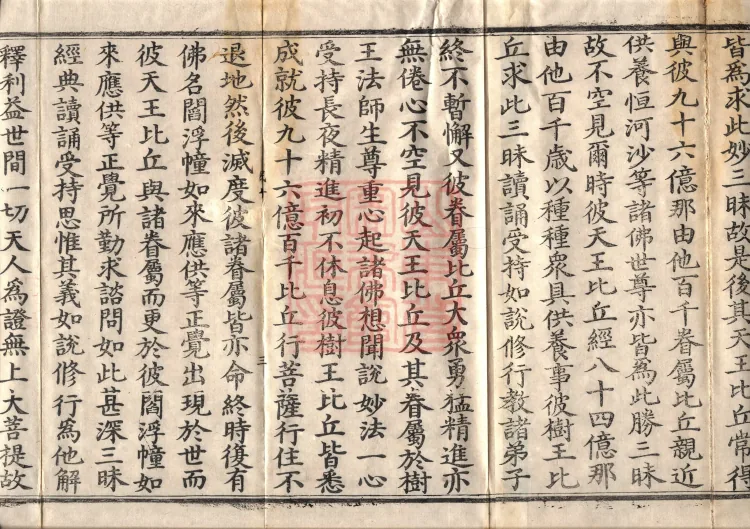 皆為求此妙三昧故是後其天王比丘常得
與彼九十六億那由他百千眷屬比丘親近
供養恒河沙等諸佛世尊亦皆為此勝三昧
故不空見爾時彼天王比丘經八十四億那
由他百千歲以種種衆具供養事彼樹王比
丘求此三昧讀誦受持如說修行教諸弟子
終不暫懈又彼眷屬比丘大衆勇猛精進亦
無倦心不空見彼天王比丘及其眷屬於樹
王法師生尊重心起諸佛想聞說妙法一心
受持長夜精進初不休息彼樹王比丘皆悉
成就彼九十六億百千比丘行菩薩行住不
退地然後滅度彼諸眷屬皆亦命終時復有
佛名閻浮幢如來應供等正覺出現於世而
彼天王比丘與諸眷屬而更於彼閻浮幢如
來應供等正覺所勤求諮問如此甚深三昧
經典讀誦受持思惟其義如說修行為他解
釋利益世間一切天人為證無上大菩提故